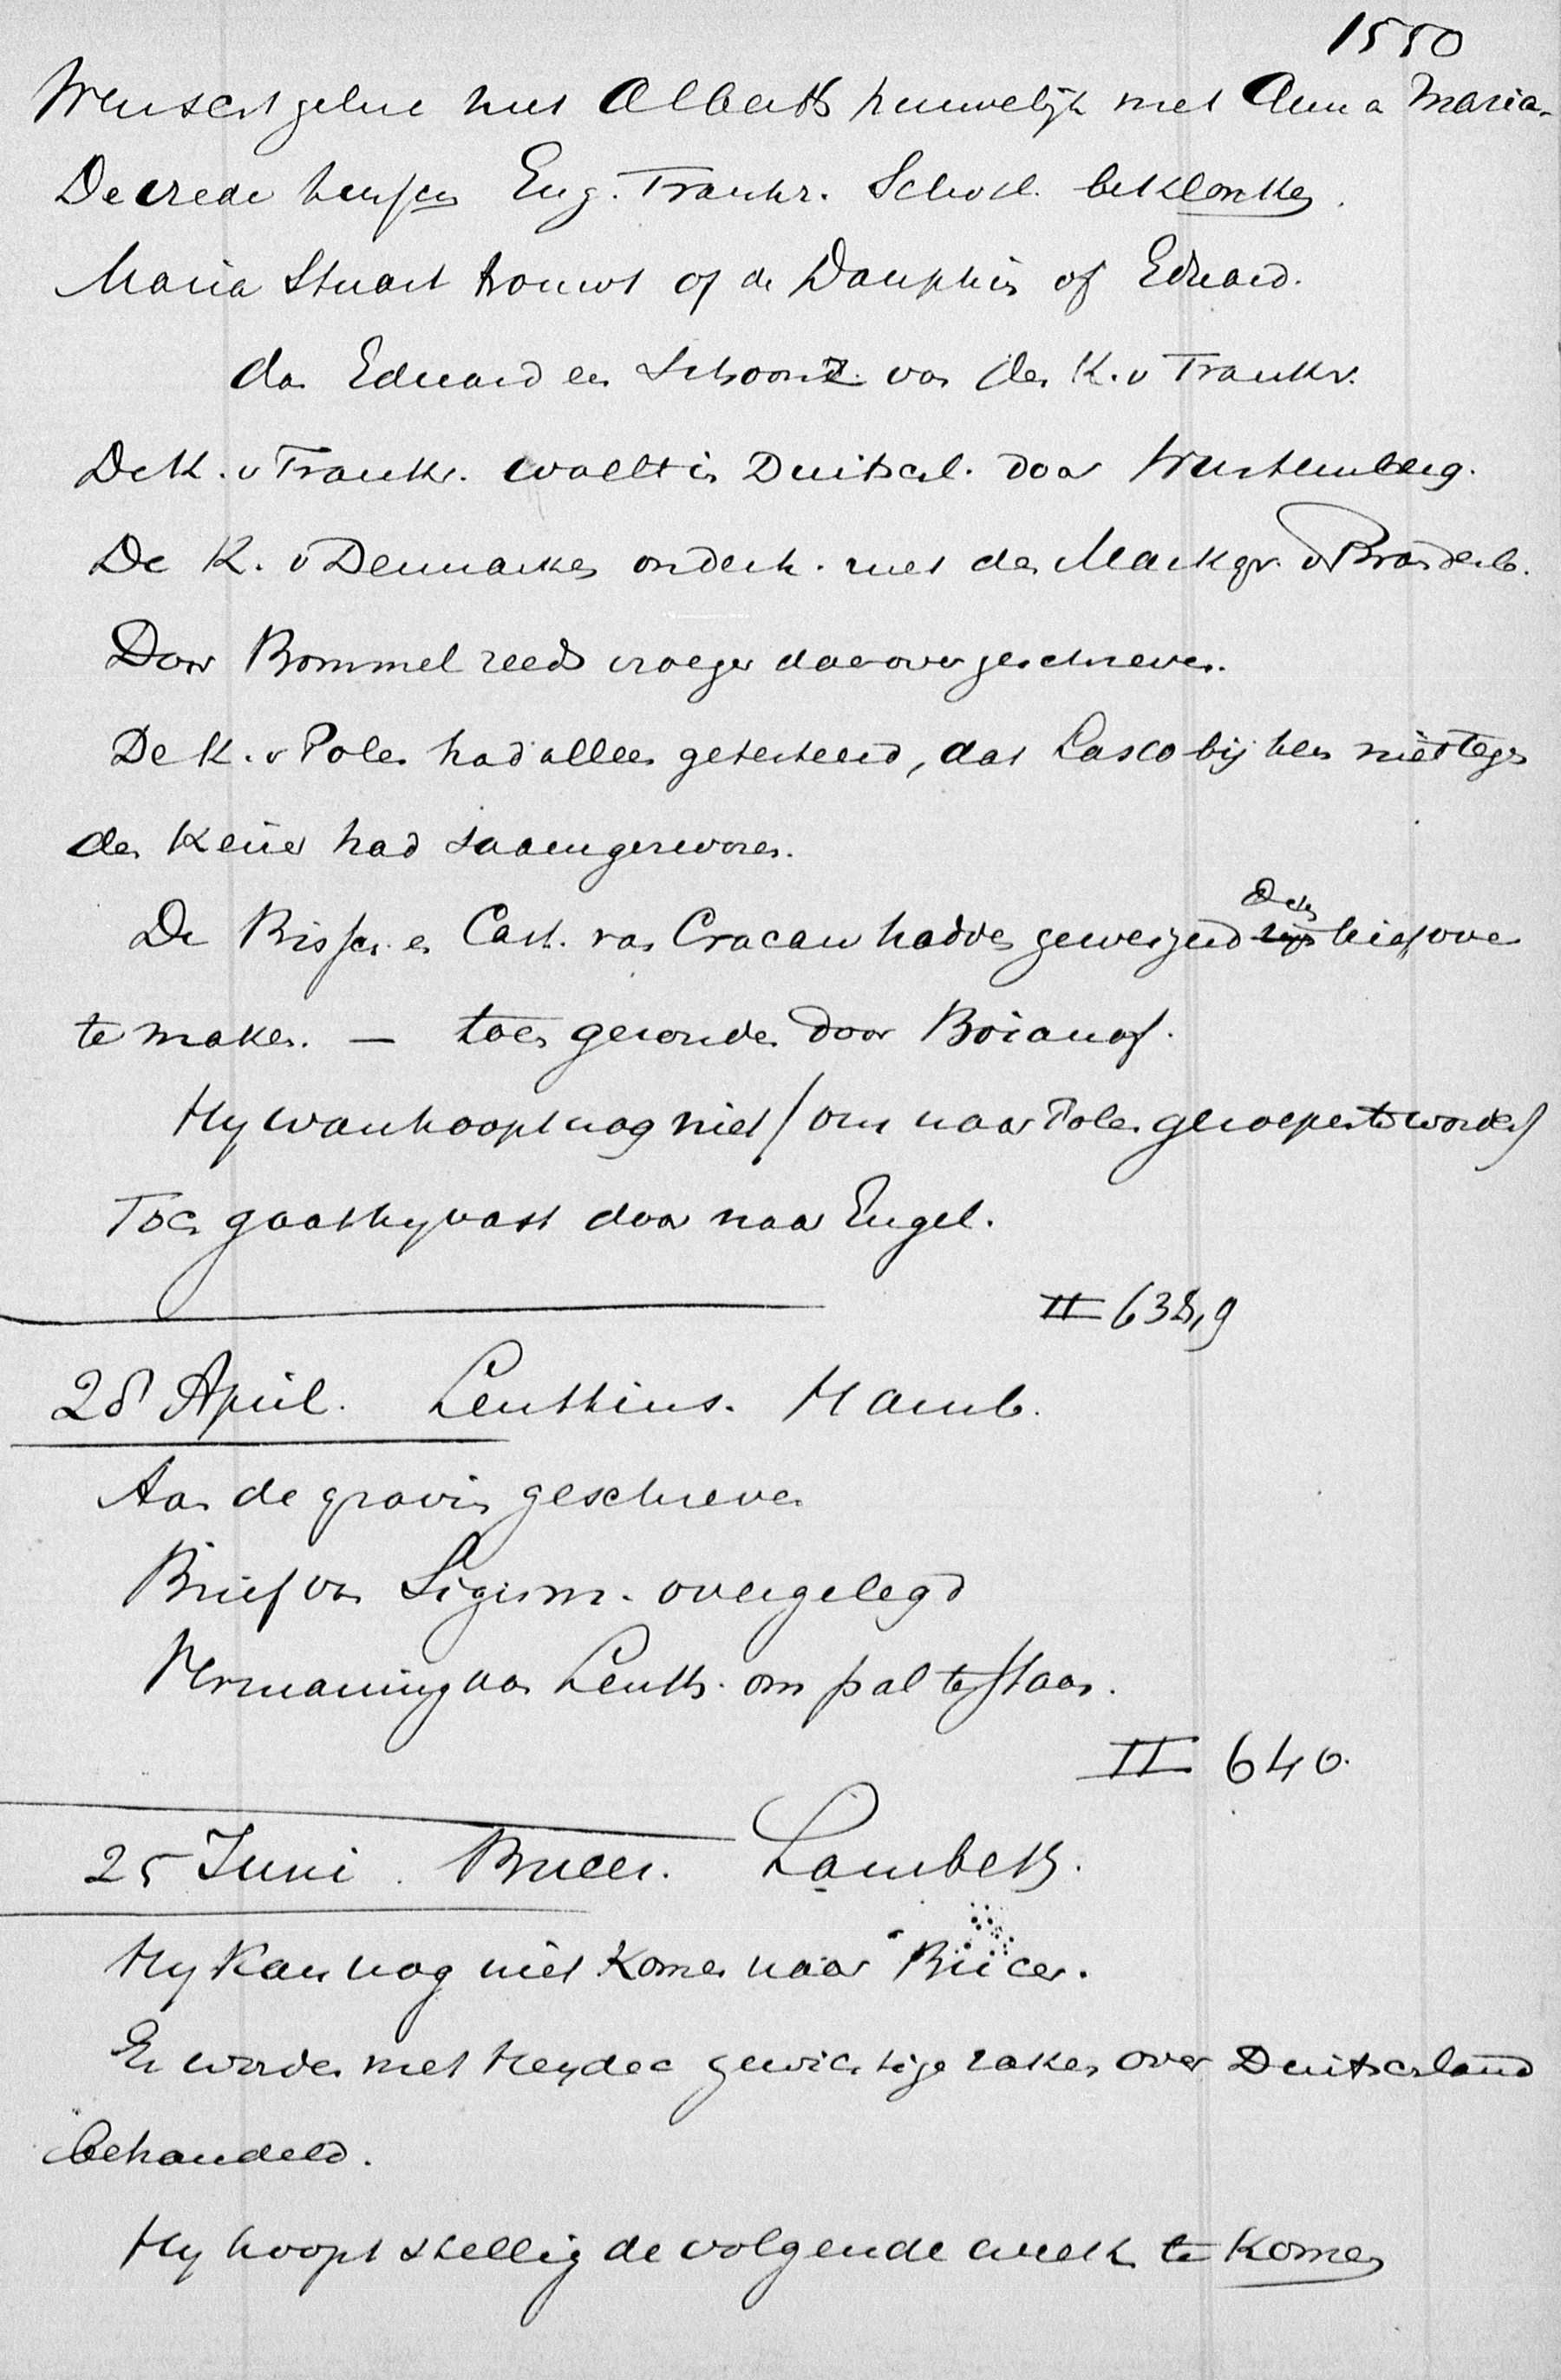 1550
Wenscht geluc met Alberts huwelijk met Anna Maria.
De vrede tusschen Eng. Frankr. Schotl. beklonken.
Maria Stuart trouwt of de Dauphin of Eduard.
dan Eduard een Schoonz. van den K. v Frankr.
De K. v Frankr. woelt in Duitschl. door Wurtemberg.
De K. v Denmarken onderh. met den Markgr. v Brandenb.
Door Bommel reeds vroeger daarover geschreven.
De K. v Polen had alleen getesteerd, dat Lasco bij hem niet tegen
den Keizer had saamgezworen.
De Bissch. en Cast. van Cracau hadden geweigerd dezen brief over
te maken. — toen gezonden door Boianof.
Hy wanhoopt nog niet (om naar Polen geroepen te worden)
Toch gaat hy vast door naar Engel.
II 638,9
28 April. Lenthius. Hamb.
Aan de gravin geschreven
Brief van Sigism. overgelegd
Vermaning aan Lenth. om pal te staan.
II 640.
25 Juni. Bucer. Lambeth.
Hy kan nog niet komen naar Bücer.
Er worden met Heydec gewichtige zaken over Duitschland
behandeld.
Hy hoopt stellig de volgende week te komen